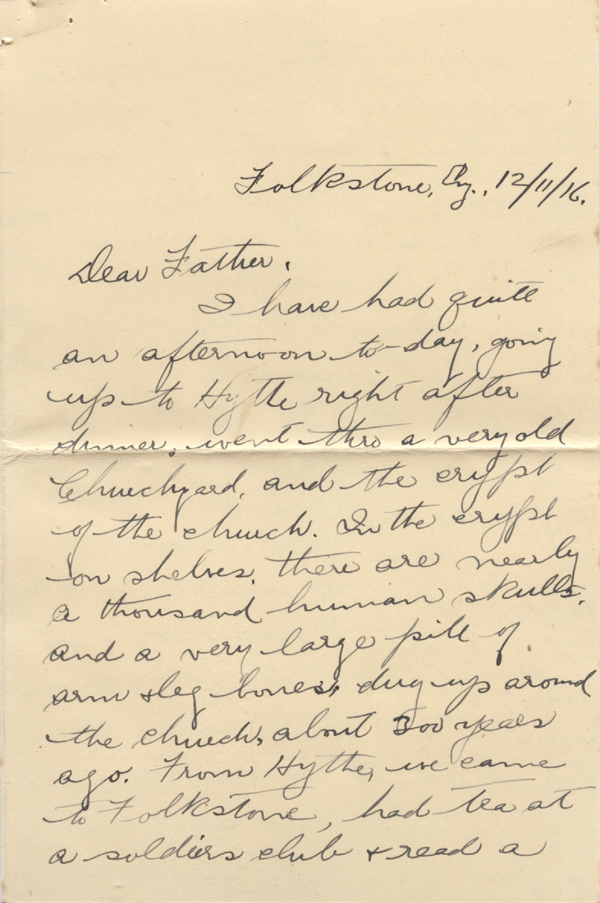 Folkstone, 12/11/16.
Dear Father,
I have had quite
an afternoon to-day, going
up to Hythe right after
dinner, went thro a very old
Churchyard, and the crypt
of the church. In the crypt
on shelves, there are nearly
a thousand human skulls,
and a very large pile of
arm & leg bones, dug up around
the church, about 300 years
ago. From Hythe, we came
to Folkstone, had tea at
a soldiers club & read a